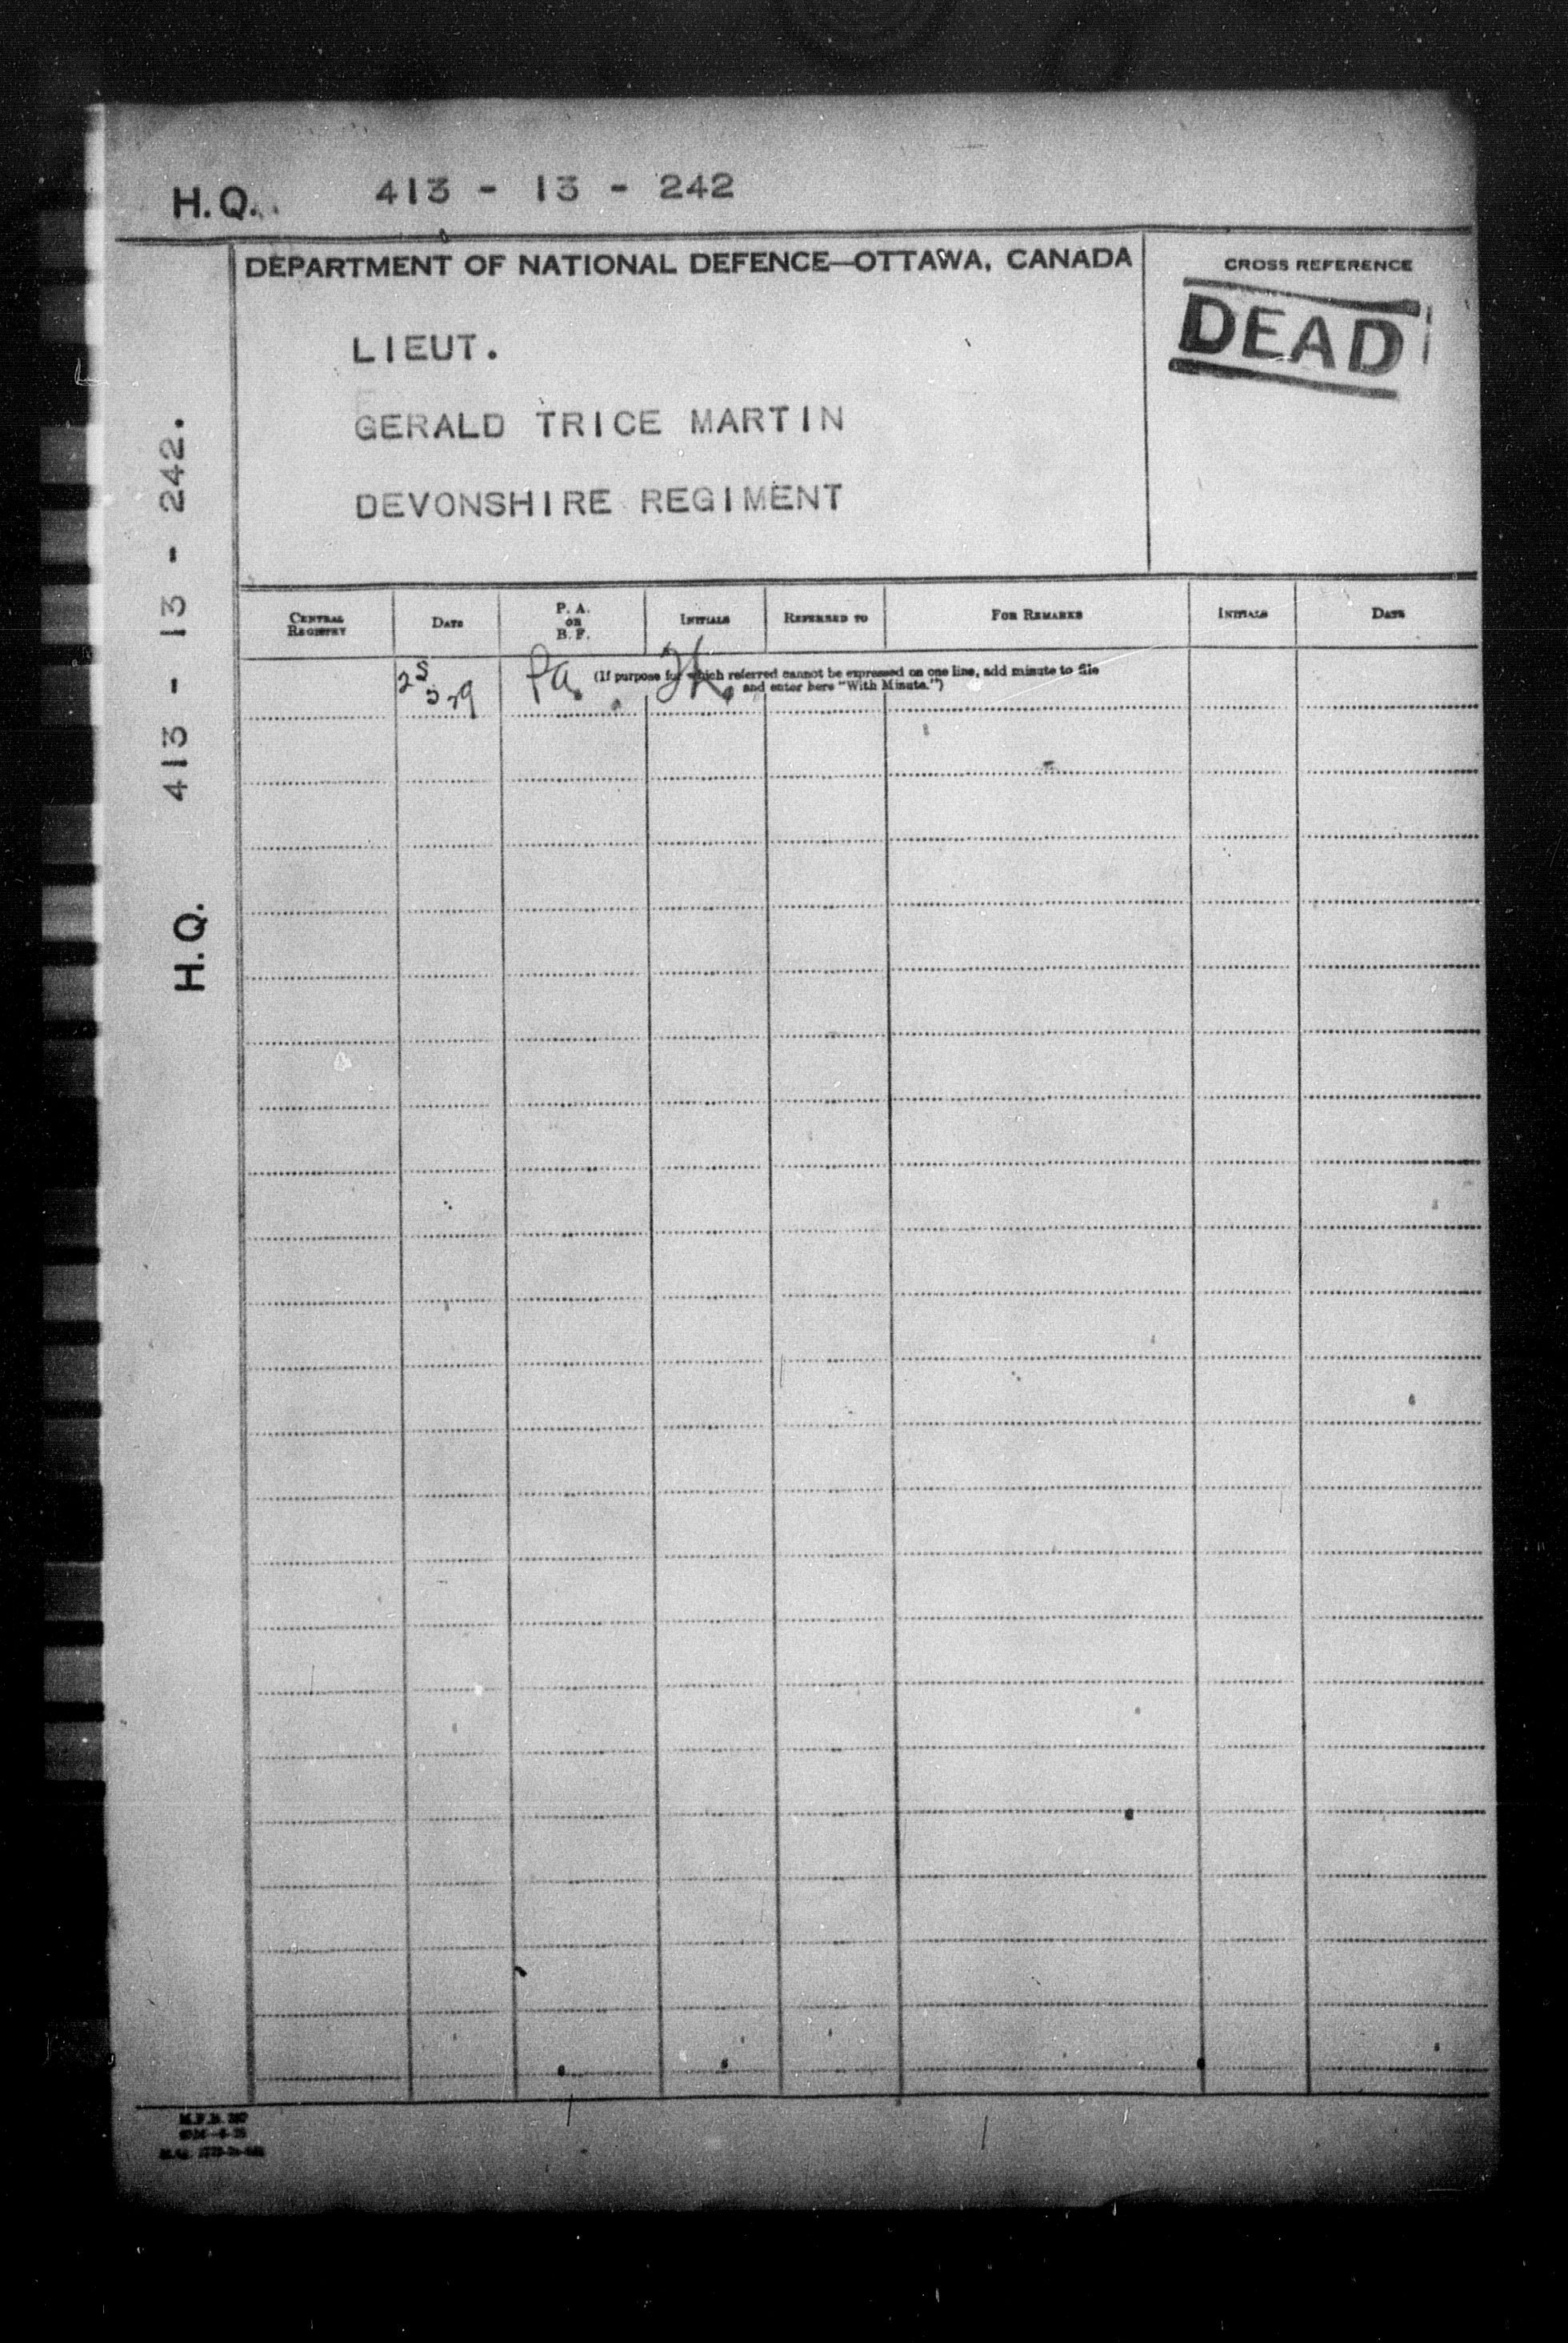 H.Q. 413 - 13 - 242
DEPARTMENT OF NATIONAL DEFENCE—OTTAWA, CANADA
CROSS REFERENCE
DEAD
LIEUT.
GERALD TRICE MARTIN
DEVONSHIRE REGIMENT
H.Q. 413 - 13 - 242.
CENTRAL REGISTRY
DATE
P. A. OR B. F.
INITIALS
REFERRED TO
FOR REMARKS
INITIALS
DATE
Pa.
(If purpose for which referred cannot be expressed on one line, add minute to file
and enter here "With Minute.")